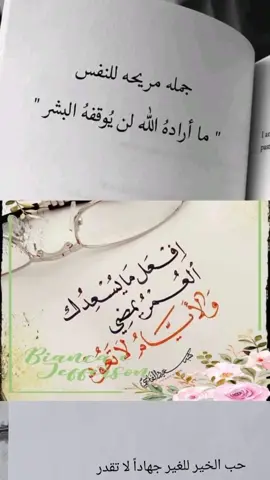 جمله مريحه للنفس
" ما أرادهُ الله لن يُوقفهُ البشر "
اِفْعَل مَا يُسْعِدُك
العُمْرُ يَمضِي
وَالأَيَّامُ لَا تَعُود
Bianca
Jefferson
حب الخير للغير جهاداً لا تقدر